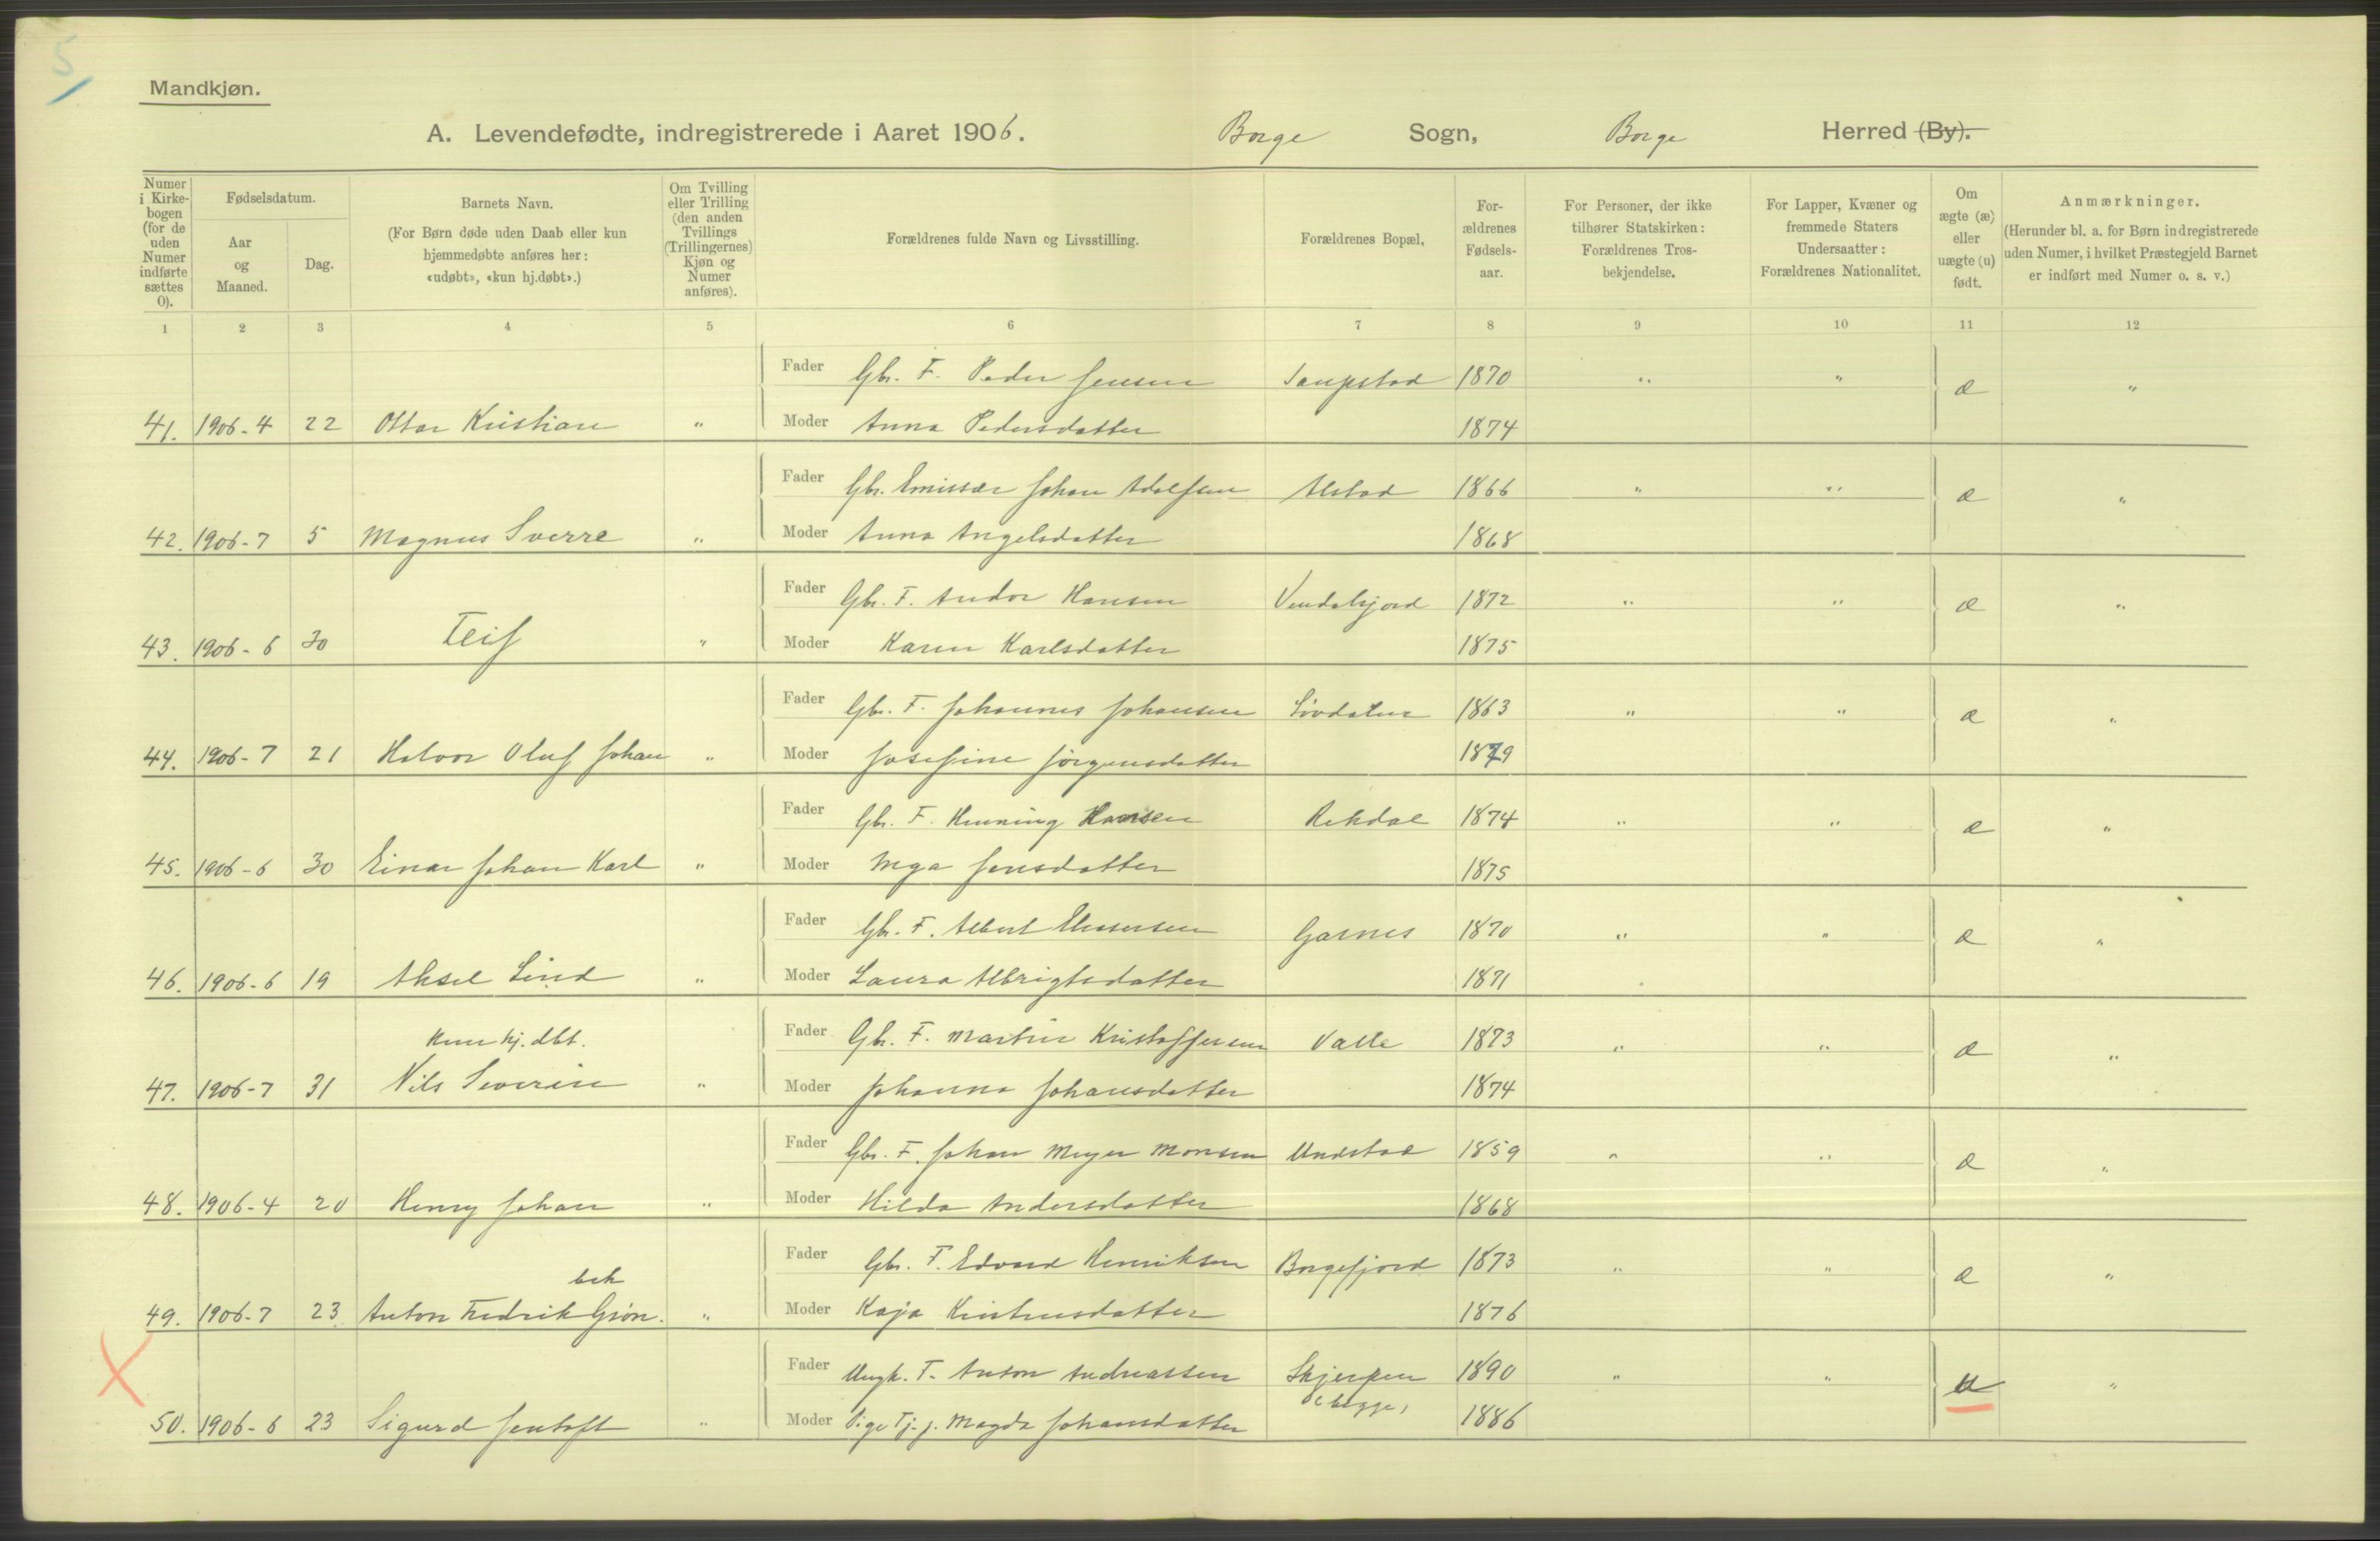 5
Mandkjøn.
A. Levendefødte, indregistrerede i Aaret 1906. Borge Sogn, Borge Herred (By).
Numer i Kirkebogen (for de uden Numer indførte sættes 0).
Fødselsdatum.
Aar og Maaned.
Dag.
Barnets Navn.
(For Børn døde uden Daab eller kun hjemmedøbte anføres her: «udøbt», «kun hj.døbt».)
Om Tvilling eller Trilling (den anden Tvillings (Trillingernes) Kjøn og Numer anføres).
Forældrenes fulde Navn og Livsstilling.
Forældrenes Bopæl.
Forældrenes Fødselsaar.
For Personer, der ikke tilhører Statskirken: Forældrenes Trosbekjendelse.
For Lapper, Kvæner og fremmede Staters Undersaatter: Forældrenes Nationalitet.
Om ægte (æ) eller uægte (u) født.
Anmærkninger.
(Herunder bl. a. for Børn indregistrerede uden Numer, i hvilket Præstegjeld Barnet er indført med Numer o. s. v.)
1 2 3 4 5 6 7 8 9 10 11 12
Fader Gbr. F. Peder Jensen Taupstad 1870 " " æ "
41. 1906-4 22 Ottar Kristian " Moder Anna Pedersdatter 1874
Fader Gbr. Emissær Johan Adolfsen Alstad 1866 " " æ "
42. 1906-7 5 Magnus Sverre " Moder Anna Angelsdatter 1868
Fader Gbr. F. Andor Hansen 1872 " " æ "
43. 1906-6 30 Leif " Moder Karen Karlsdatter 1875
Fader Gbr. F. Johannes Johansen 1863 " " æ "
44. 1906-7 21 Halvor Oluf Johan " Moder Josefine Jörgensdatter 1879
Fader Gbr. F. Henning Hansen Rekdal 1874 " " æ "
45. 1906-6 30 Einar Johan Karl " Moder Inga Jensdatter 1875
Fader Gbr. F. Albert 1870 " " æ "
46. 1906-6 19 Aksel Lind " Moder Laura Albrigtsdatter 1871
Kun hj. dbt.
Fader Gbr. F. Martin Kristoffersen Valle 1873 " " æ "
47. 1906-7 31 Nils Severin " Moder Johanna Johansdatter 1874
Fader Gbr. F. Johan Meyer Monsen Unstad 1859 " " æ "
48. 1906-4 20 Henry Johan " Moder Hilda Andersdatter 1868
Fader Gbr. F. Edvard Henriksen Borgefjord 1873 " " æ "
bek
49. 1906-7 23 Anton Fredrik Grön. " Moder Kaja Kristensdatter 1876
Fader Ungk. F. Anton Andreassen Skjerpen 1890 " " u "
(begge)
50. 1906-6 23 Sigurd Jentoft " Moder Pige Tj. j. Magda Johansdatter 1886